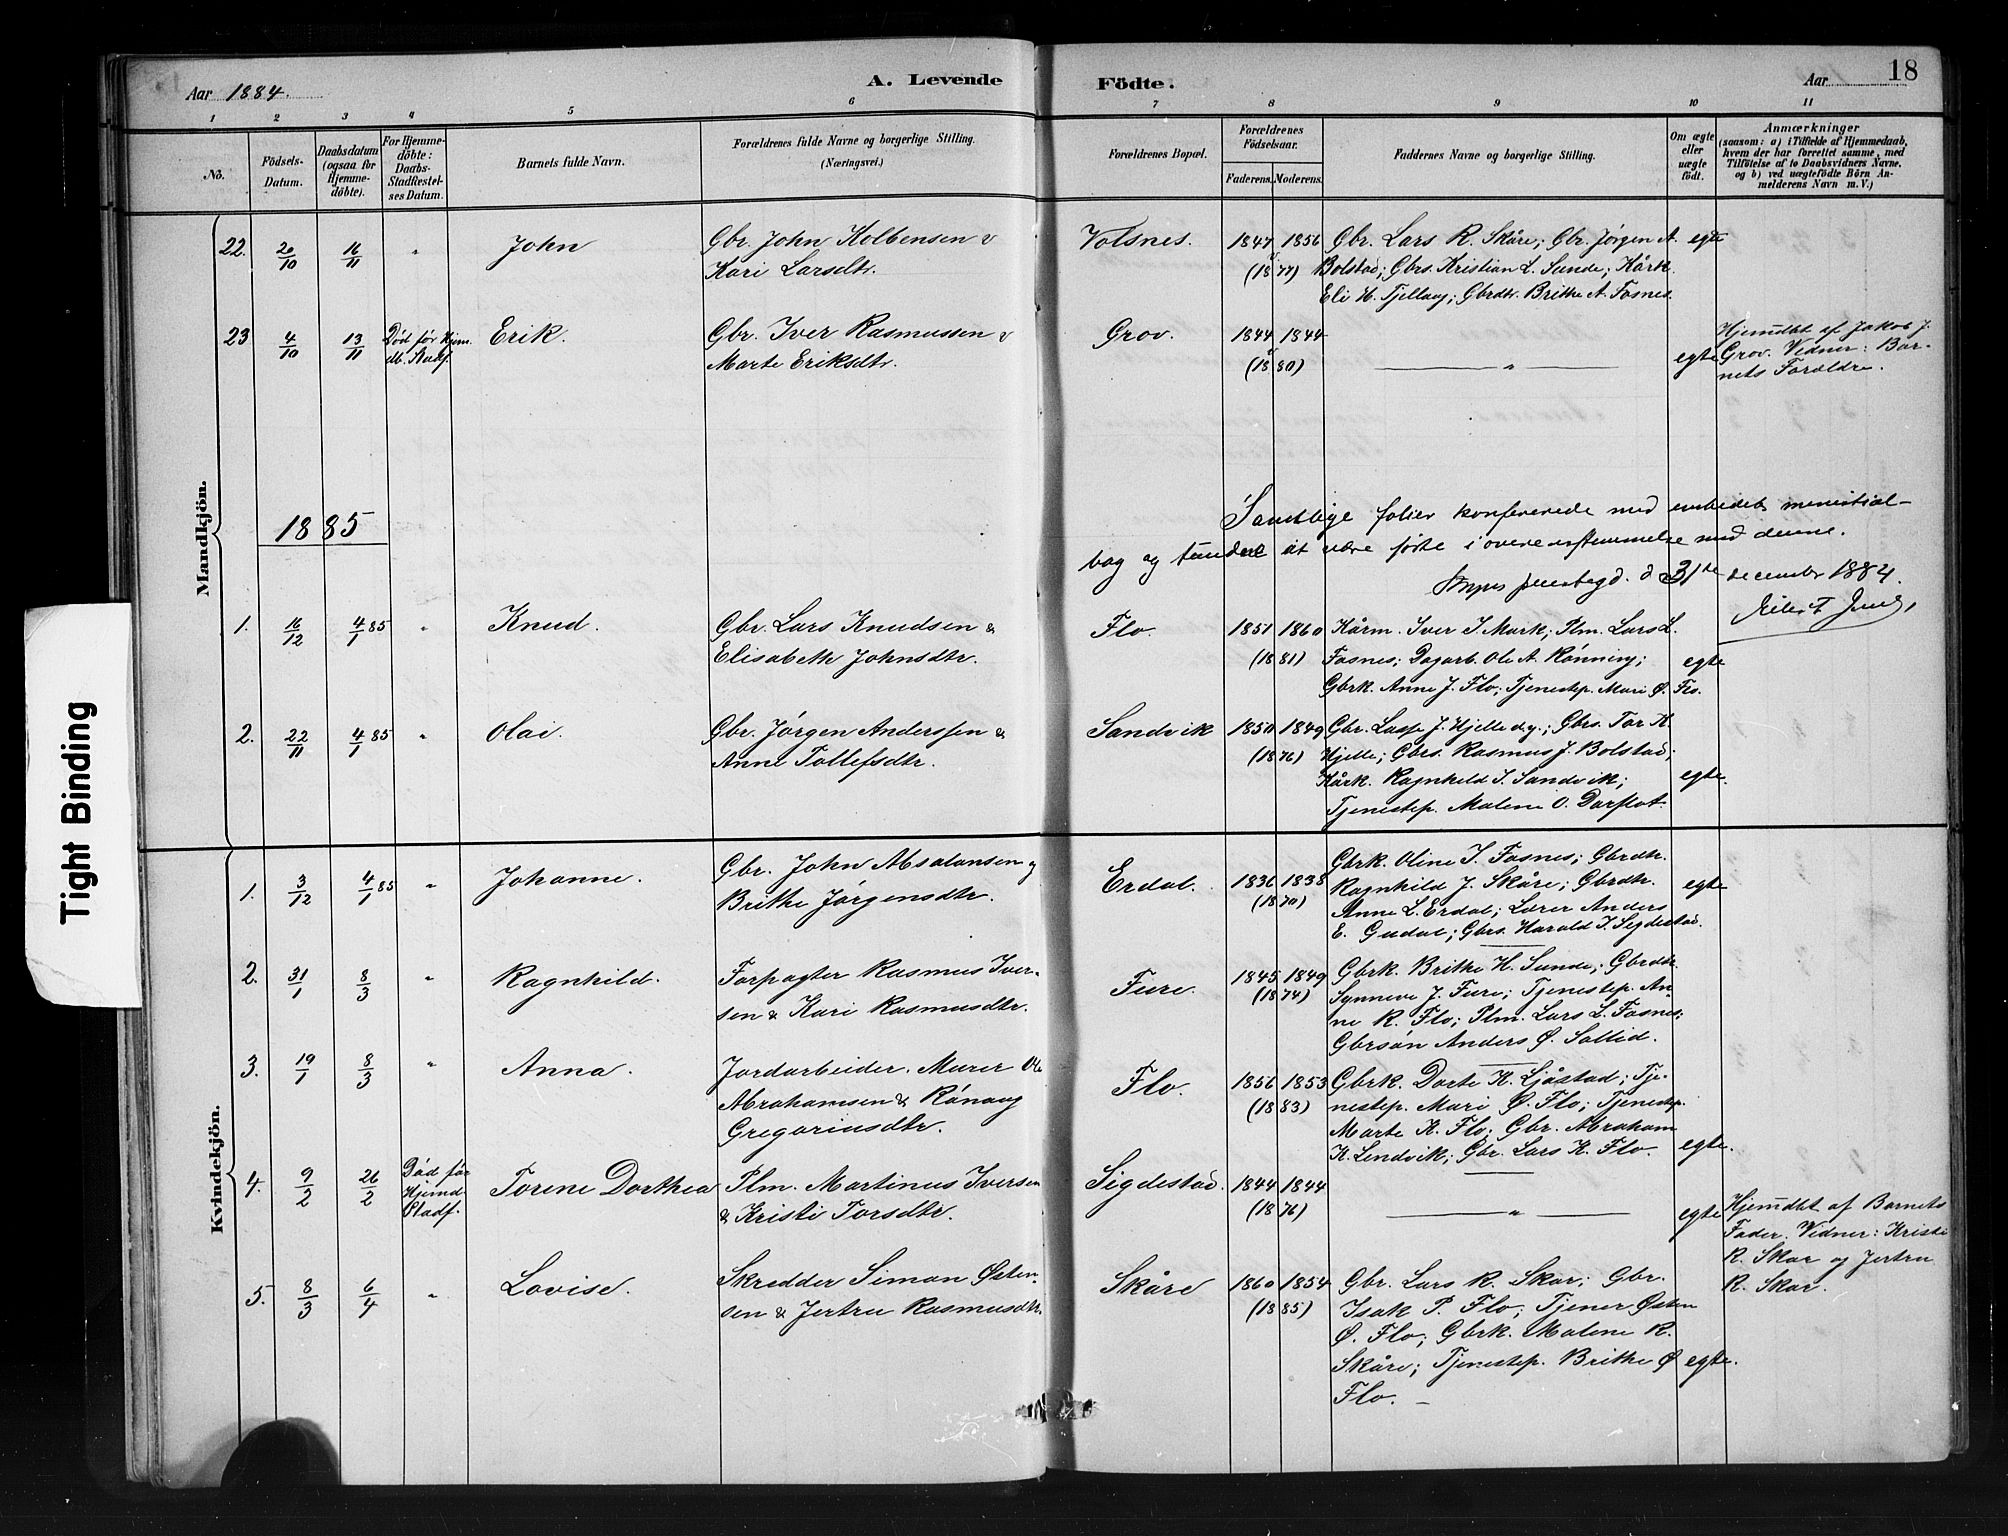 Aar 1884.
A. Levende
Födte.
Aar
18
1
2
3
4
5
6
7
8
9
10
11
No.
Födsels-
Datum.
Daabsdatum
(ogsaa for
Hjemme-
döbte).
For Hjemme-
döbte:
Daabs-
Stadfæstel-
ses Datum.
Barnets fulde Navn.
Forældrenes fulde Navne og borgerlige Stilling.
(Næringsvei.)
Forældrenes Bopæl.
Forældrenes
Födselsaar.
Faderens.
Moderens.
Faddernes Navne og borgerlige Stilling.
Om ægte
eller
uægte
födt.
Anmærkninger
(saasom: a) i Tilfælde af Hjemmedaab,
hvem der har forrettet samme, med
Tilföielse af to Daabsvidners Navne.
og b) ved uægtefödte Börn An-
melderens Navn m. V.)
Mandkjön.
22. 20/10 16/11 " John
Gbr. John Kolbensen &
Kari Larsdtr.
Volsnes.
1847 1856
(1877)
Gbr. Lars R. Skåre; Gbr. Jørgen A.
Bolstad; Gbrs. Kristian L. Sunde; Kårk.
Eli H. Tjellaug; Gbrdtr. Brithe A. Fosnes.
egte
23 4/10 13/11
Død før Hjem-
db. Stadf.
Erik.
Gbr. Iver Rasmussen &
Marte Eriksdtr.
Grov.
1844 1844
(1880)
"
egte
Hjemdbt af Jakob J.
Grov. Vidner: Bar-
nets Forældre.
1885
Samtlige folier konfererede med embedets menistial-
bog og fundne at være førte i overensstemmelse med denne.
d 31te december 1884.
1. 16/12 4/1 85 " Knud.
Gbr. Lars Knudsen &
Elisabeth Johnsdtr.
Flo.
1851 1860
(1881)
Kårm. Iver I. Mark; Plm. Lars L.
Fosnes; Dagarb. Ole A. Rønning;
Gbrk. Anne J. Flo; Tjenestep. Mari Ø. Flo.
egte
2. 22/11 4/1 85 " Olai.
Gbr. Jørgen Anderssen &
Anne Tollefsdtr.
Sandvik
1850 1849
(1876)
Gbr. Lasse J. Hjelle d.y.; Gbrs. Tor K.
Hjelle; Gbrs. Rasmus J. Bolstad;
Kårk. Ragnhild I. Sandvik;
Tjenestep. Malene O. Dorflot.
egte.
Kvindekjön.
1. 3/12 4/1 85 " Johanne.
Gbr. John Absalonsen &
Brithe Jørgensdtr.
Erdal.
1836 1838
(1870)
Gbrk. Oline I. Fosnes; Gbrdtr.
Ragnhild J. Skåre; Gbrdtr.
Anne L. Erdal; Lærer Anders
E. Gudal; Gbrs. Harald I. Sigdestad.
egte
2. 31/1 8/3 " Ragnhild.
Forpagter Rasmus Iver-
sen & Kari Rasmusdtr.
Fure.
1845 1849
(1874)
Gbrk. Brithe H. Sunde; Gbrdtr.
Synneve J. Fure; Tjenestep. An-
ne R. Flo; Plm. Lars L. Fosnes;
Gbrsøn Anders Ø. Soltid.
3. 19/1 8/3 " Anna.
Jordarbeider, Murer Ole
Abrahamsen & Rånaug
Gregoriusdtr.
Flo.
1856 1853
(1883)
Gbrk. Dorte K. Ljåstad; Tje-
nestep. Mari Ø. Flo; Tjenestep.
Marte K. Flo; Gbr. Abraham
K. Lendvik; Gbr. Lars K. Flo.
egte.
4. 9/2 26/2
Død før
Hjemd-
Stadf.
Torine Dorthea
Plm. Martinus Iversen
& Kristi Torsdtr.
Sigdestad.
1844 1844
(1876)
"
egte
Hjemdbt af Barnets
Fader. Vidner: Kristi
R. Skar og Jertru
R. Skar.
5. 8/3 6/4 " Lovise.
Skredder Simon Østen-
sen & Jertru Rasmusdtr.
Skåre
1860 1854
(1885)
Gbr. Lars R. Skar; Gbr.
Isak P. Flo; Tjener Østen
Ø. Flo; Gbrk. Malene R.
Skåre; Tjenestep. Brithe Ø
Flo.
egte.
Tight Binding